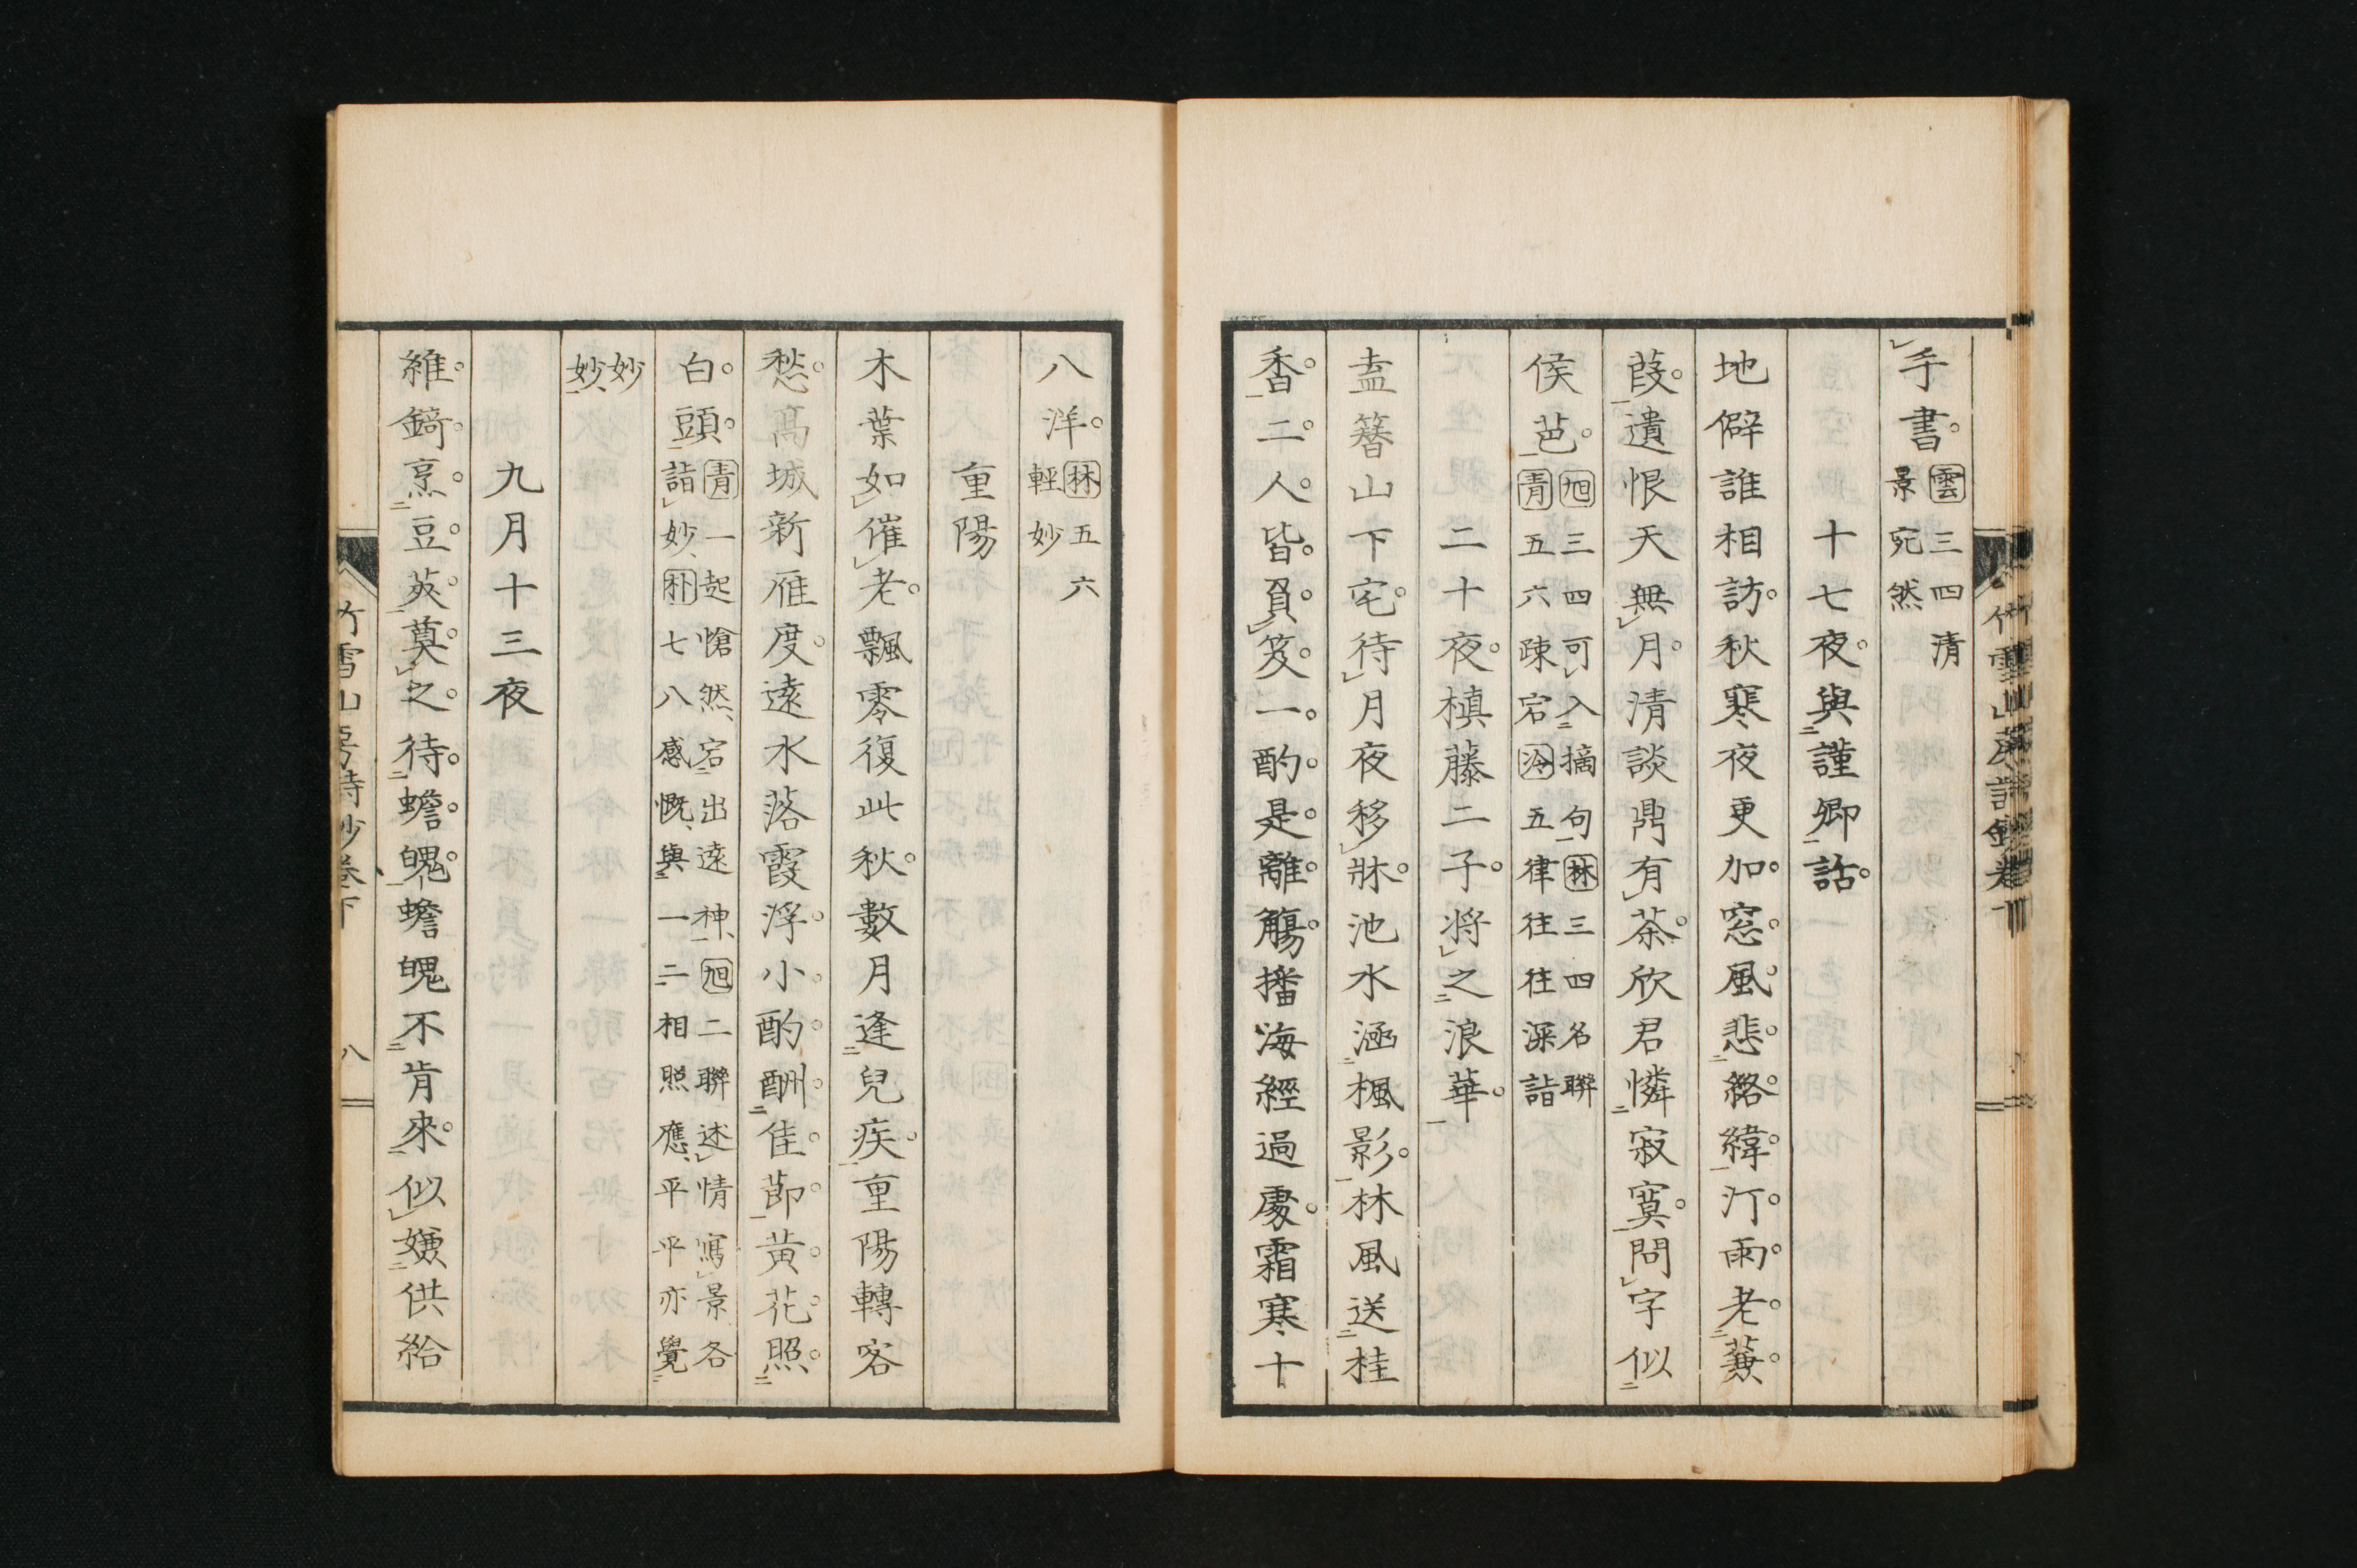 手書雲三四清景宛然
十七夜與謹卿話
地僻誰相訪秋寒夜更加窓風悲絡緯汀雨老蒹
葭遺恨天無月清談鼎有茶欣君憐寂寞問字似
侯芭旭三四可入摘句林三四名聯青五六疎宕海五律往往深詣
二十夜槙藤二子將之浪華
盍簪山下宅待月夜移牀池水涵楓影林風送桂
香二人皆負笈一酌是離觴播海經過處霜寒十
八洋林五六輕妙
重陽
木葉如催老飄零復此秋數月逢兒疾重陽轉客
愁髙城新雁度遠水落霞浮小酌酬佳節黃花照
白頭青一起愴然宕出遠神旭二聯述情寫景各詣妙朴七八感慨與一二相照應平平亦覺
妙妙
九月十三夜
維錡烹豆莢奠之待蟾魄蟾魄不肯來似嫌供給
竹雪山房詩鈔卷下
八